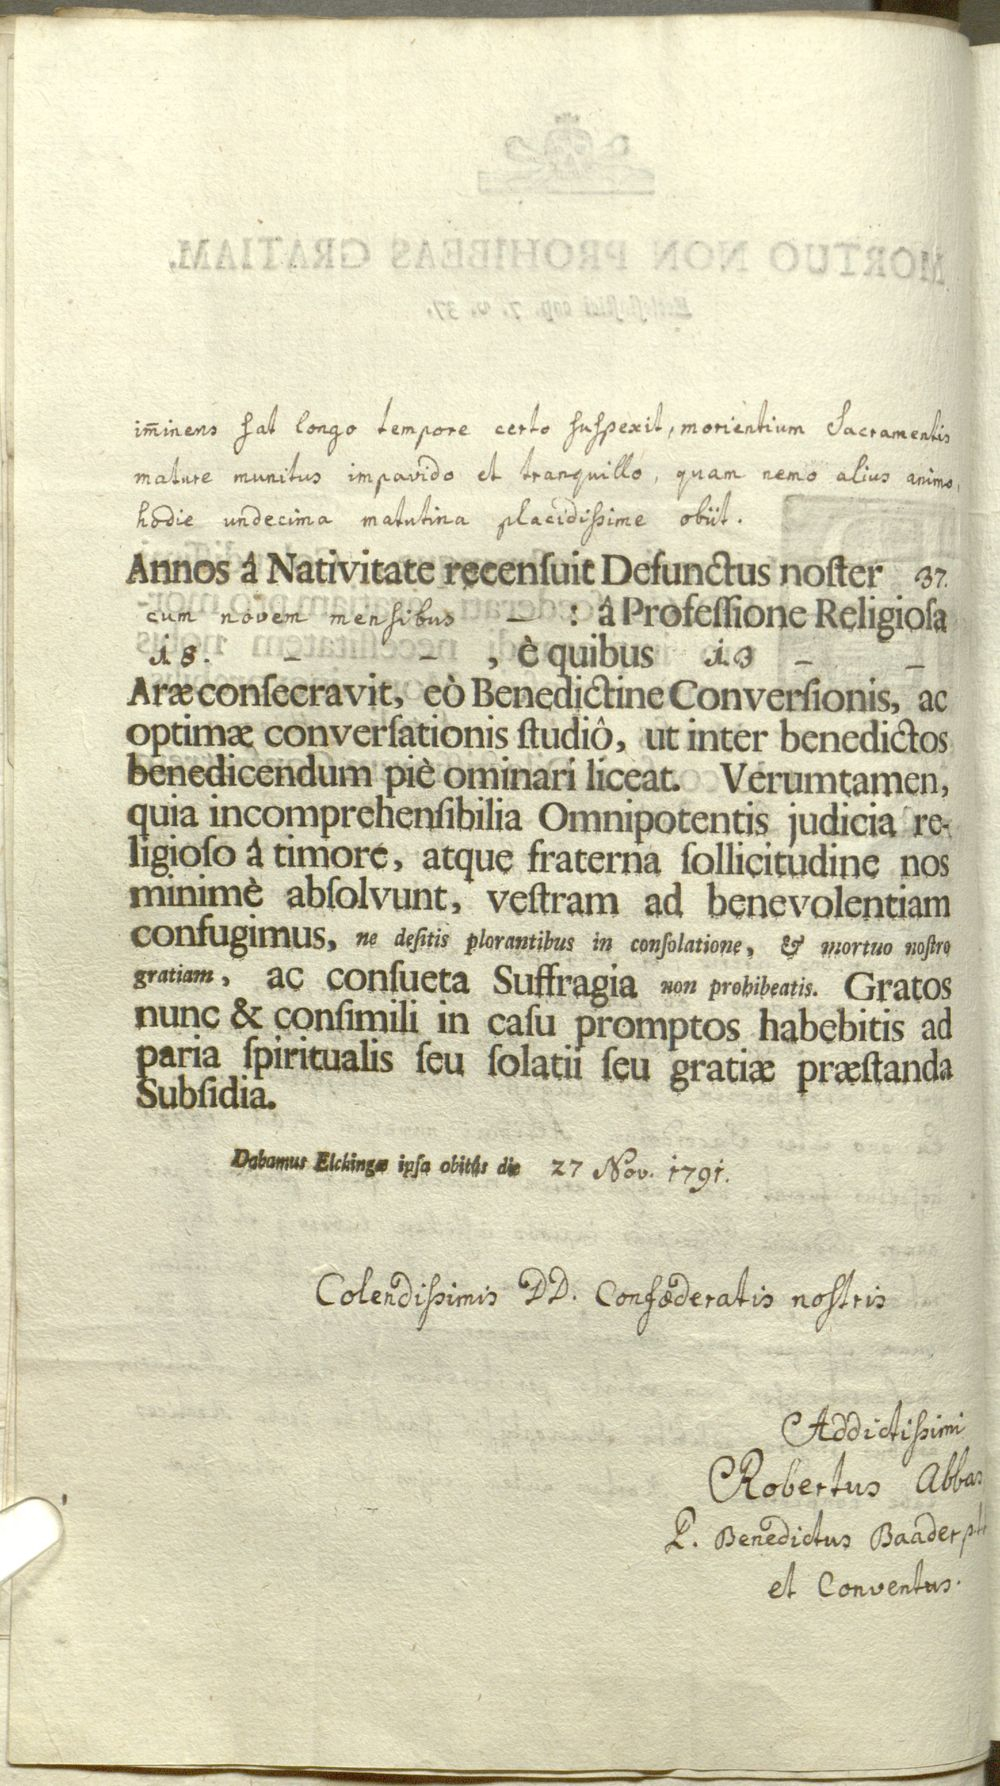 im̄inens sat longo tempore certo suspexit, morientium Sacramentis
mature munitus impavido et tranquillo, quam nemo alius animo,
hodie undecima matutina placidissime obiit.
Annos â Nativitate recenſuit Defunctus noſter 37.
cum novem mensibus – : â Profeſſione Religioſa
18. – – , è quibus 13 – –
Aræ conſecravit, eò Benedictine Converſionis, ac
optimæ converſationis ſtudiô, ut inter benedictos
benedicendum piè ominari liceat. Verumtamen,
quia incomprehenſibilia Omnipotentis judicia re-
ligioſo â timore, atque fraterna ſollicitudine nos
minimè abſolvunt, veſtram ad benevolentiam
confugimus, ne deſitis plorantibus in conſolatione, & mortuo noſtro
gratiam, ac conſueta Suffragia non prohibeatis. Gratos
nunc & conſimili in caſu promptos habebitis ad
paria ſpiritualis ſeu ſolatii ſeu gratiæ præſtanda
Subſidia.
Dabamus Elchingæ ipſa obitûs die 27 Nov. 1791.
Colendissimis DD. Confœderatis nostris
Addictissimi
Robertus Abbas
P. Benedictus Baader
et Conventus.